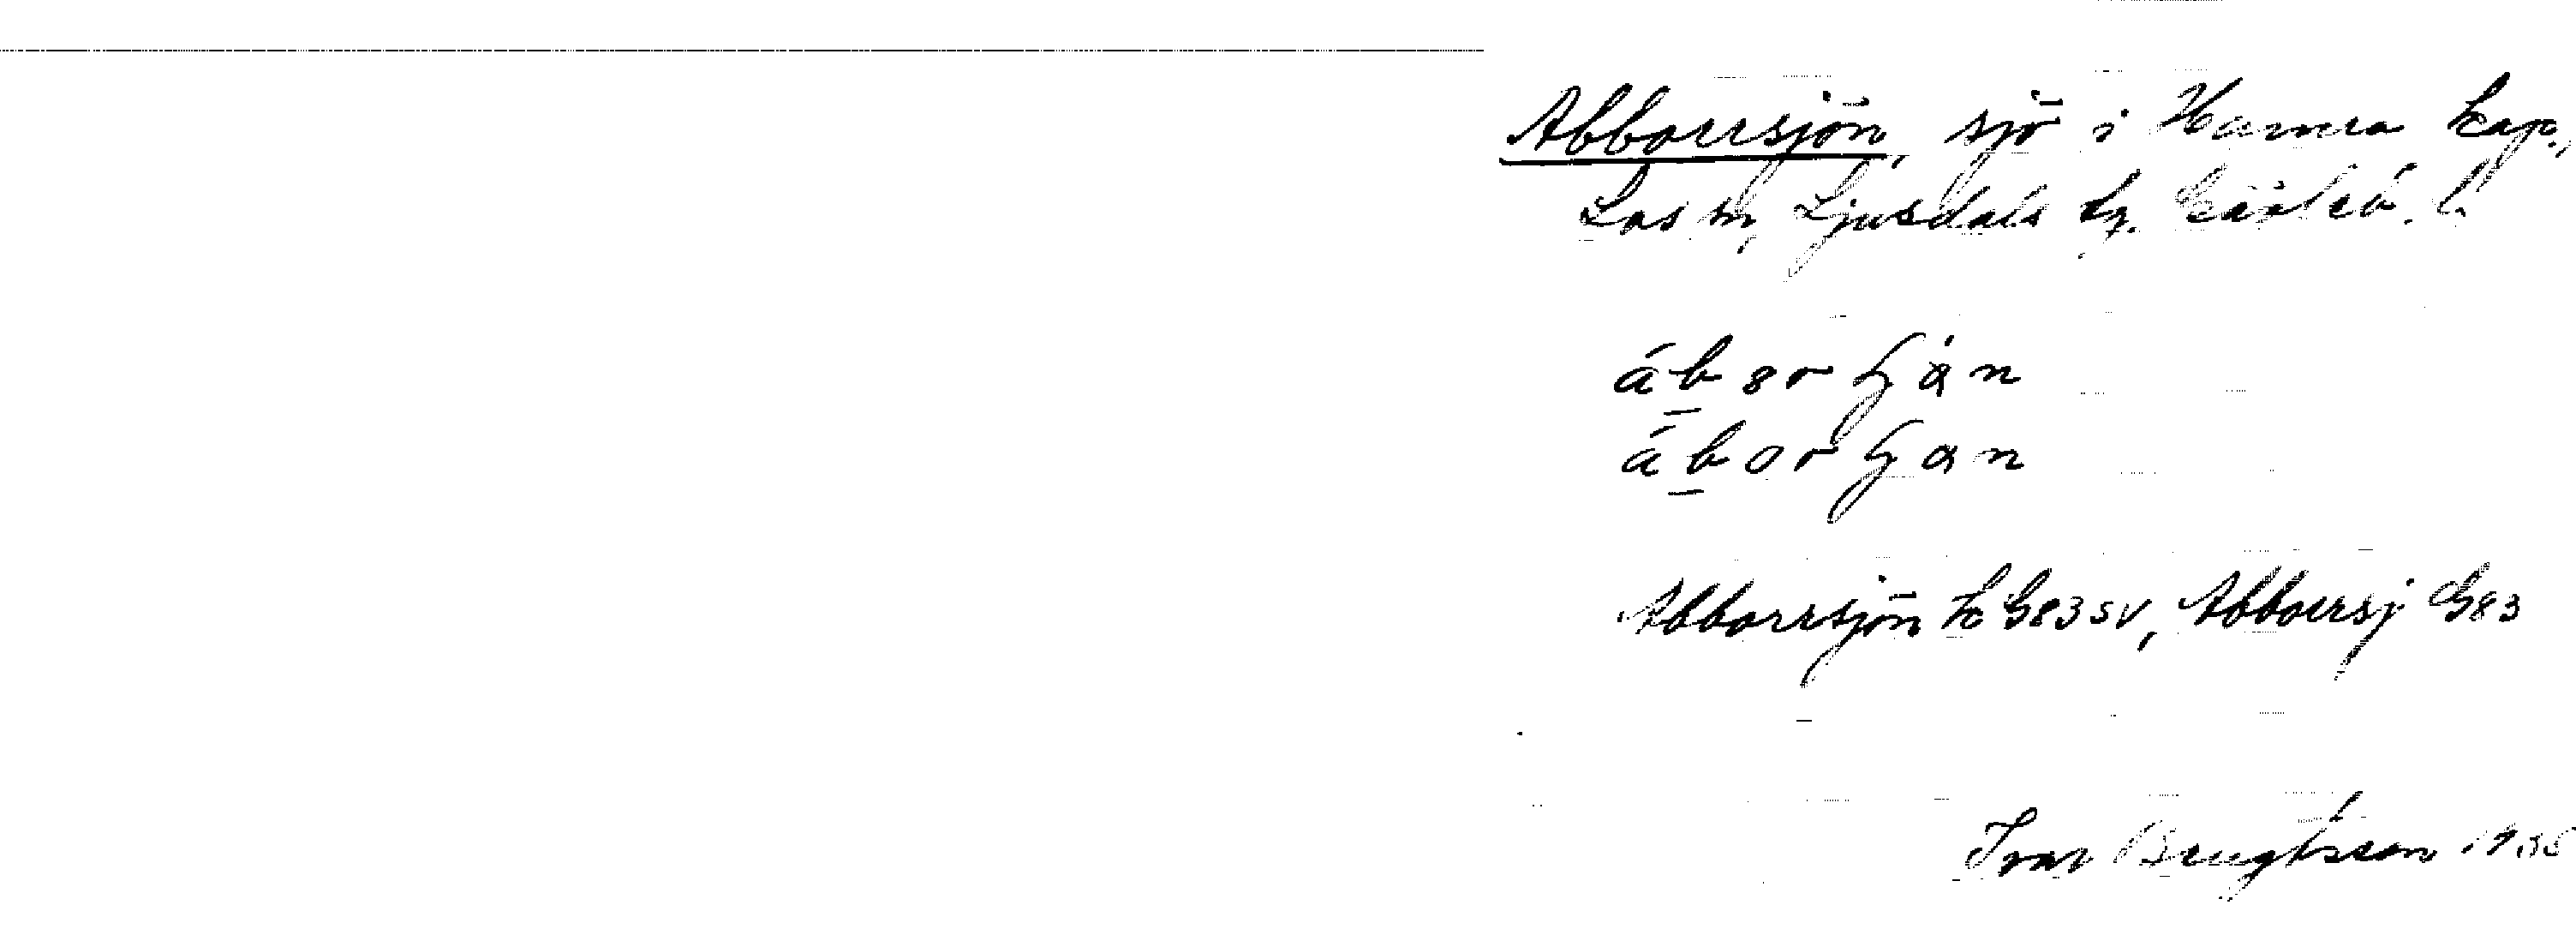 Abborrsjön, sjö i Hamra kap.,
Los sn, Ljusdals tg. Gävleb. l.
Abborrsjön K G83 SV, Abborrsj G83
Ivar Bengtsson 1935